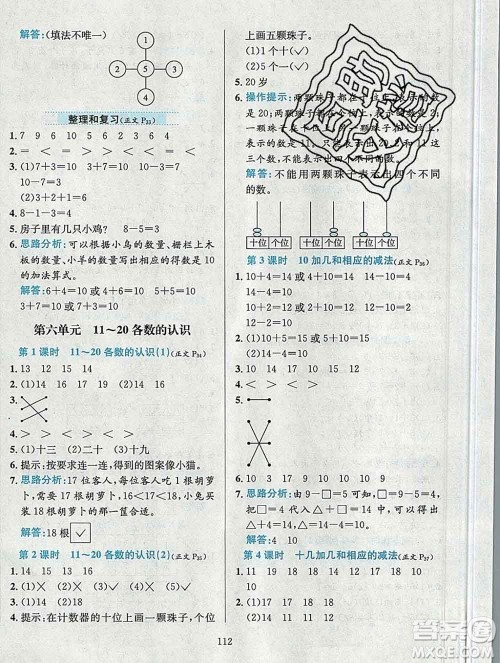 解答:(填法不唯一)
1
3 5 2
4
整理和复习(正文 P33)
1. 7 9 10 6 5 2 3 6 4
2. < < > > > =
3. (1)7+3=10 3+7=10
10-7=3 10-3=7
4. 8-1-3=4
5. 房子里有几只小鸡? 8-5=3
6. 思路分析:可以根据小鸟的数量、栅栏上木
板的数量、小羊的数量写出相应的得数是 10
的加法算式。
解答:5+5=10 6+4=10 7+3=10
第六单元 11～20 各数的认识
第 1 课时 11～20 各数的认识(1)(正文 P34)
1. 13 12 14 15
2. (1)14 16 17 (2)14 18 20
3.
4. > < > < > <
5. (1)十三 (2)二十 (3)十九
6. 提示:按要求连一连,得到的图案像小猫。
7. 思路分析:17 位客人,每位客人吃 1 根胡萝
卜,需要 17 根胡萝卜,16<17<18,小兔买
18 根胡萝卜的那一筐合适。
解答:18 根 ✓
第 2 课时 11～20 各数的认识(2)(正文 P35)
1. 14 15 13 16
2. (1)× (2)√ (3)× (4)×
3. 10 2 17 20
4. 提示:在计数器的十位上画一颗珠子,个位
上画五颗珠子。
(1)1 个十(√)
(2)5 个一(√)
5. 20 岁
6. 操作提示:两颗珠子都在十位上,
20;两颗珠子都在个位上,
一颗珠子在十位上,
表示的数是 11。只能表示出 20、2、11 这
三个数,不能表示出四个不同的数。
解答:不能用两颗珠子表示出四个不同
的数。
十位 个位 十位 个位 十位 个位
第 3 课时 10 加几和相应的减法(正文 P36)
1. 10+4=14 10+5=15
4+10=14 5+10=15
14-4=10 15-5=10
2. 12 17 10 10 10 20 16 10
3. < = < = < >
4. 10+2=12 10+6=16
2+10=12 6+10=16
12-2=10 16-6=10
5.
6. 10 13 17 19 18 9
7. 思路分析:由□-10=5 可知,□=15,把
□=15 代入□-○=10 可知,○=5,把
□=15,○=5 代入○+□-10=△可知,
△=10。
解答:5 10
第 4 课时 十几加几和相应的减法(正文 P37)
1. (1)17 17 14 14 (2)18 18 12 12